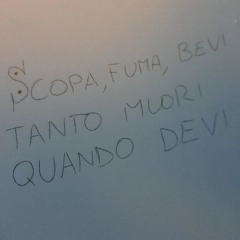 SCOPA, FUMA, BEVI
TANTO MUORI
QUANDO DEVI